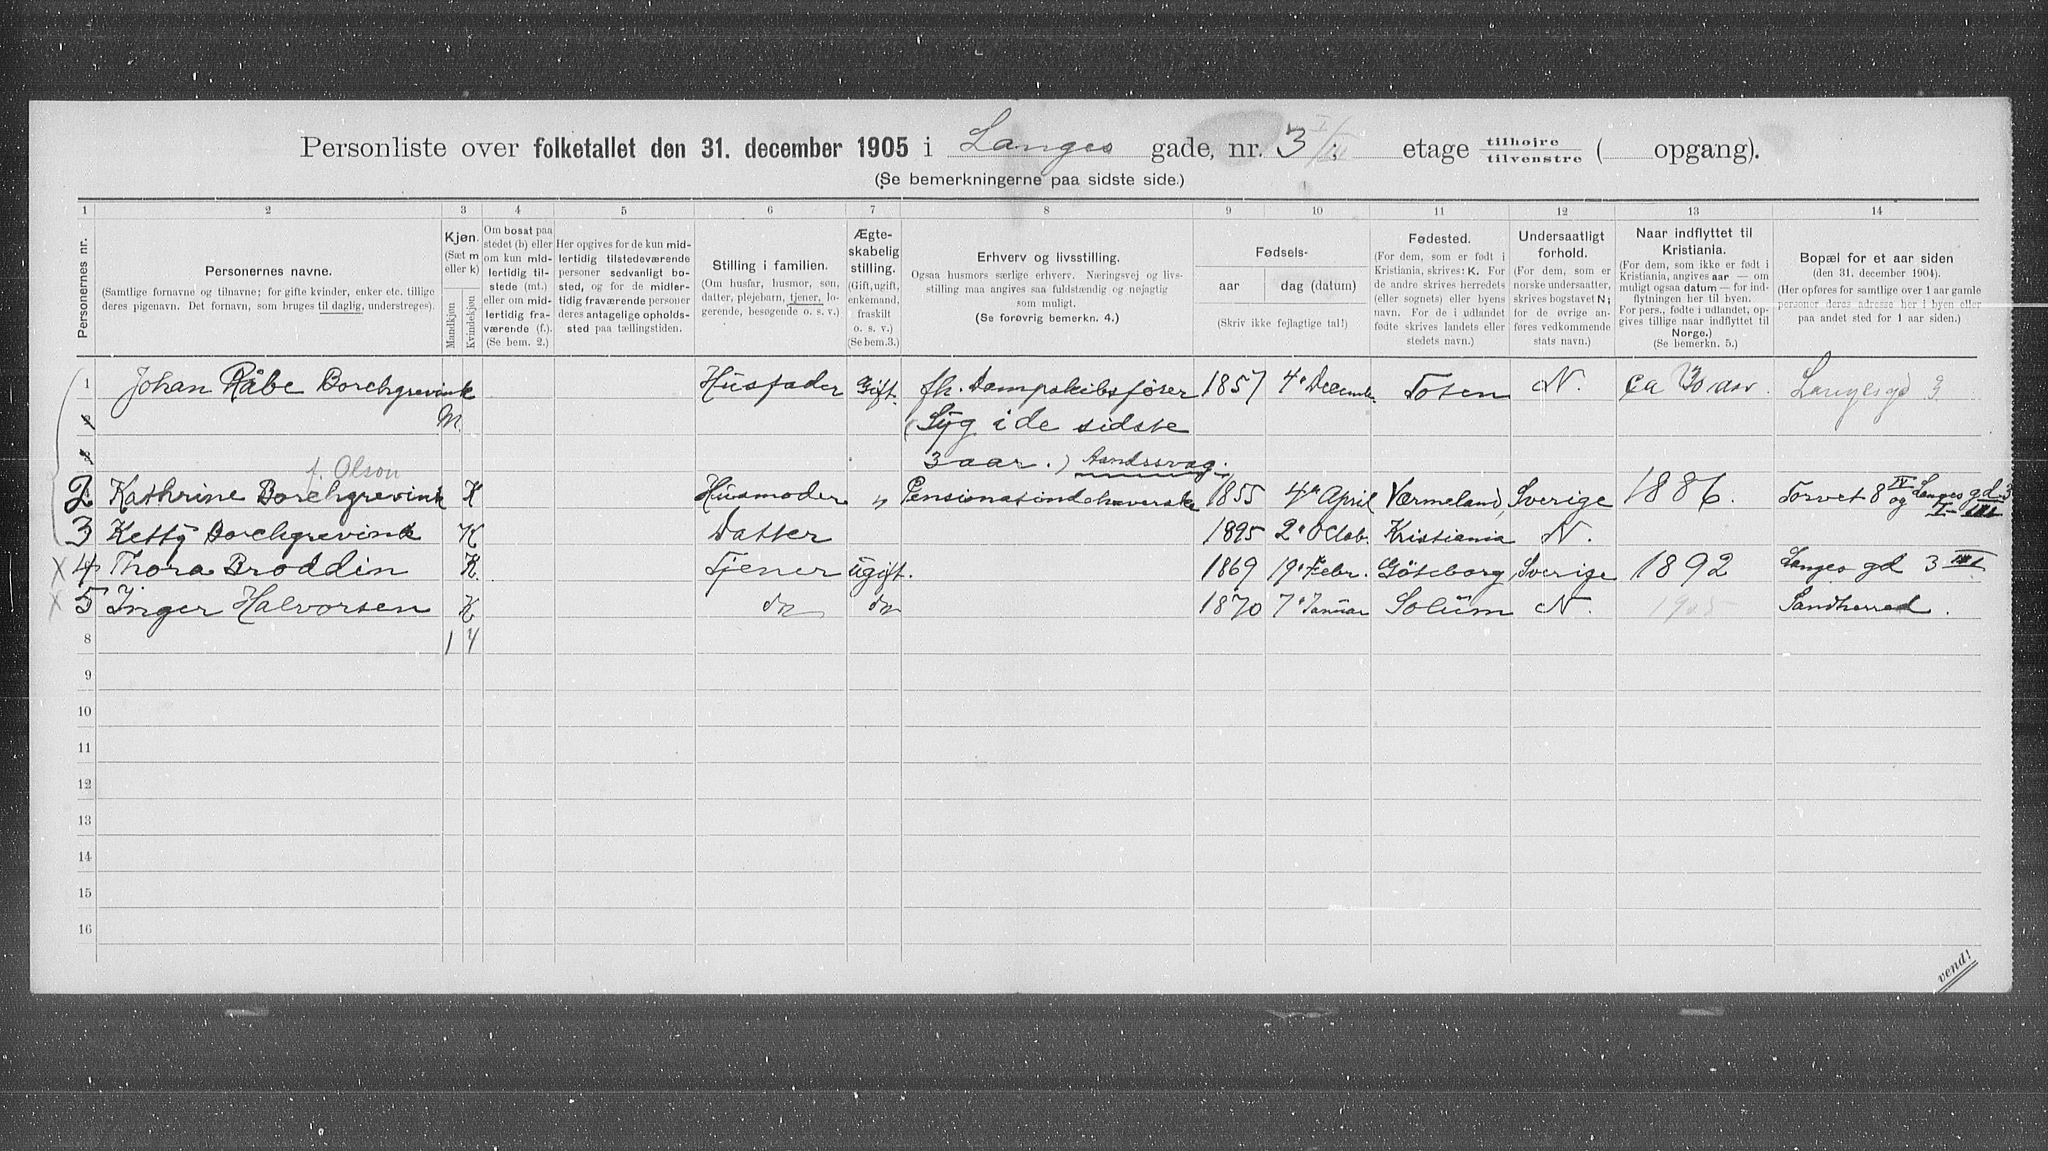 Personliste over folketallet den 31. december 1905 i Langes gade, nr. 3 I/III : etage tilhøjre tilvenstre ( opgang).
(Se bemerkningerne paa sidste side.)
1 2 3 4 5 6 7 8 9 10 11 12 13 14
Personernes nr.
Personernes navne.
(Samtlige fornavne og tilnavne; for gifte kvinder, enker etc. tillige
deres pigenavn. Det fornavn, som bruges til daglig, understreges).
Kjøn.
(Sæt m
eller k)
Mandkjøn
Kvindekjøn.
Om bosat paa
stedet (b) eller
om kun mid-
lertidig til-
stede (mt.)
eller om mid-
lertidig fra-
værende (f.).
(Se bem. 2.)
Her opgives for de kun mid-
lertidig tilstedeværende
personer sedvanligt bo-
sted, og for de midler-
tidig fraværende personer
deres antagelige opholds-
sted paa tællingstiden.
Stilling i familien.
(Om husfar, husmor, søn,
datter, plejebarn, tjener, lo-
gerende, besøgende o. s. v.)
Ægte-
skabelig
stilling.
(Gift, ugift,
enkemand,
fraskilt
o. s. v.)
(Se bem.3.)
Erhverv og livsstilling.
Ogsaa husmors særlige erhverv. Næringsvej og livs-
stilling maa angives saa fuldstændig og nøjagtig
som muligt.
(Se forøvrig bemerkn. 4.)
Fødsels-
aar dag (datum)
(Skriv ikke fejlagtige tal!)
Fødested.
(For dem, som er født i
Kristiania, skrives: K. For
de andre skrives herredets
(eller sognets) eller byens
navn. For de i udlandet
fødte skrives landets eller
stedets navn.)
Undersaatligt
forhold.
(For dem, som er
norske undersaatter,
skrives bogstavet N;
for de øvrige an-
føres vedkommende
stats navn.)
Naar indflyttet til
Kristiania.
(For dem, som ikke er født i
Kristiania, angives aar — om
muligt ogsaa datum — for ind-
flytningen her til byen.
For pers., fødte i udlandet, op-
gives tillige naar indflyttet til
Norge.)
(Se bemerkn. 5.)
Bopæl for et aar siden
(den 31. december 1904).
(Her opføres for samtlige over 1 aar gamle
personer deres adresse her i byen eller
paa andet sted for 1 aar siden.)
1 Johan Råbe Borchgrevink M. Husfader Gift. fh. Dampskibsfører 1857 4' Decembr. Toten N. ca 30 aar. Langesgd 3
(Syg i de sidste
3 aar.) Aandssvag.
f. Olson
2 Kathrine Borchgrevink K Husmoder " Pensionatsindehaverske 1855 4' April Værmeland, Sverige 1886. Torvet 8 IV og Langes gd 3 I - III
3 Ketty Borchgrevink K Datter 1895 2' Octob. Kristiania N.
X 4 Thora Broddin K. Tjener ugift. 1869 19' Febr. Göteborg, Sverige 1892 Langes gd 3 III
X 5 Inger Halvorsen K do do 1870 7' Januar Solum N. 1905 Sandherred.
8 1 4
9
10
11
12
13
14
15
16
vend!